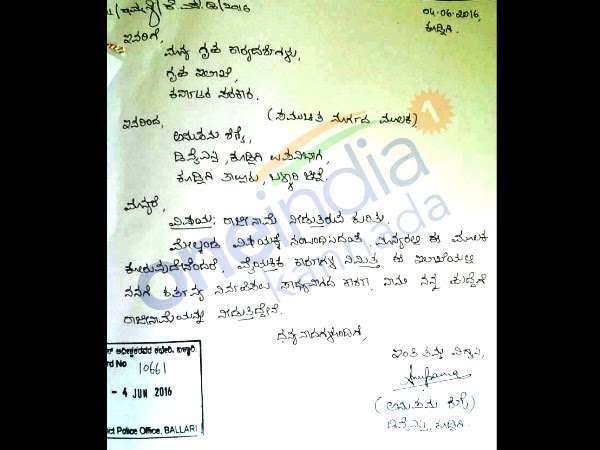 04-06-2016,
ಕೂಡ್ಲಿಗಿ.
ಇವರಿಗೆ,
ಮಾನ್ಯ ಗೃಹ ಕಾರ್ಯದರ್ಶಿಗಳು,
ಗೃಹ ಇಲಾಖೆ,
ಕರ್ನಾಟಕ ಸರಕಾರ.
(ಸಮುಚಿತ ಮಾರ್ಗದ ಮೂಲಕ)
ಇವರಿಂದ,
ಅನುಪಮಾ ಶೆಣೈ,
ಡಿವೈಎಸ್ಪಿ, ಕೂಡ್ಲಿಗಿ ಉಪವಿಭಾಗ,
ಕೂಡ್ಲಿಗಿ ತಾಲ್ಲೂಕು, ಬಳ್ಳಾರಿ ಜಿಲ್ಲೆ.
ಮಾನ್ಯರೆ,
ವಿಷಯ: ರಾಜೀನಾಮೆ ನೀಡುತ್ತಿರುವ ಕುರಿತು.
ಮೇಲ್ಕಂಡ ವಿಷಯಕ್ಕೆ ಸಂಬಂಧಿಸಿದಂತೆ, ಮಾನ್ಯರಲ್ಲಿ ಈ ಮೂಲಕ
ಕೋರುವುದೇನೆಂದರೆ, ವೈಯಕ್ತಿಕ ಕಾರಣಗಳ ನಿಮಿತ್ತ ಈ ಇಲಾಖೆಯಲ್ಲಿ
ನನಗೆ ಕರ್ತವ್ಯ ನಿರ್ವಹಿಸಲು ಸಾಧ್ಯವಾಗದ ಕಾರಣ, ನಾನು ನನ್ನ ಹುದ್ದೆಗೆ
ರಾಜೀನಾಮೆಯನ್ನು ನೀಡುತ್ತಿದ್ದೇನೆ.
ಧನ್ಯವಾದಗಳೊಂದಿಗೆ,
ಇಂತಿ ತಮ್ಮ ವಿಶ್ವಾಸಿ,
Anupama
(ಅನುಪಮಾ ಶೆಣೈ)
ಡಿವೈಎಸ್ಪಿ, ಕೂಡ್ಲಿಗಿ.
ಅಧೀಕ್ಷಕರವರ ಕಛೇರಿ, ಬಳ್ಳಾರಿ.
No 10661
- 4 JUN 2016
Police Office, BALLARI
oneindia
kannada
1